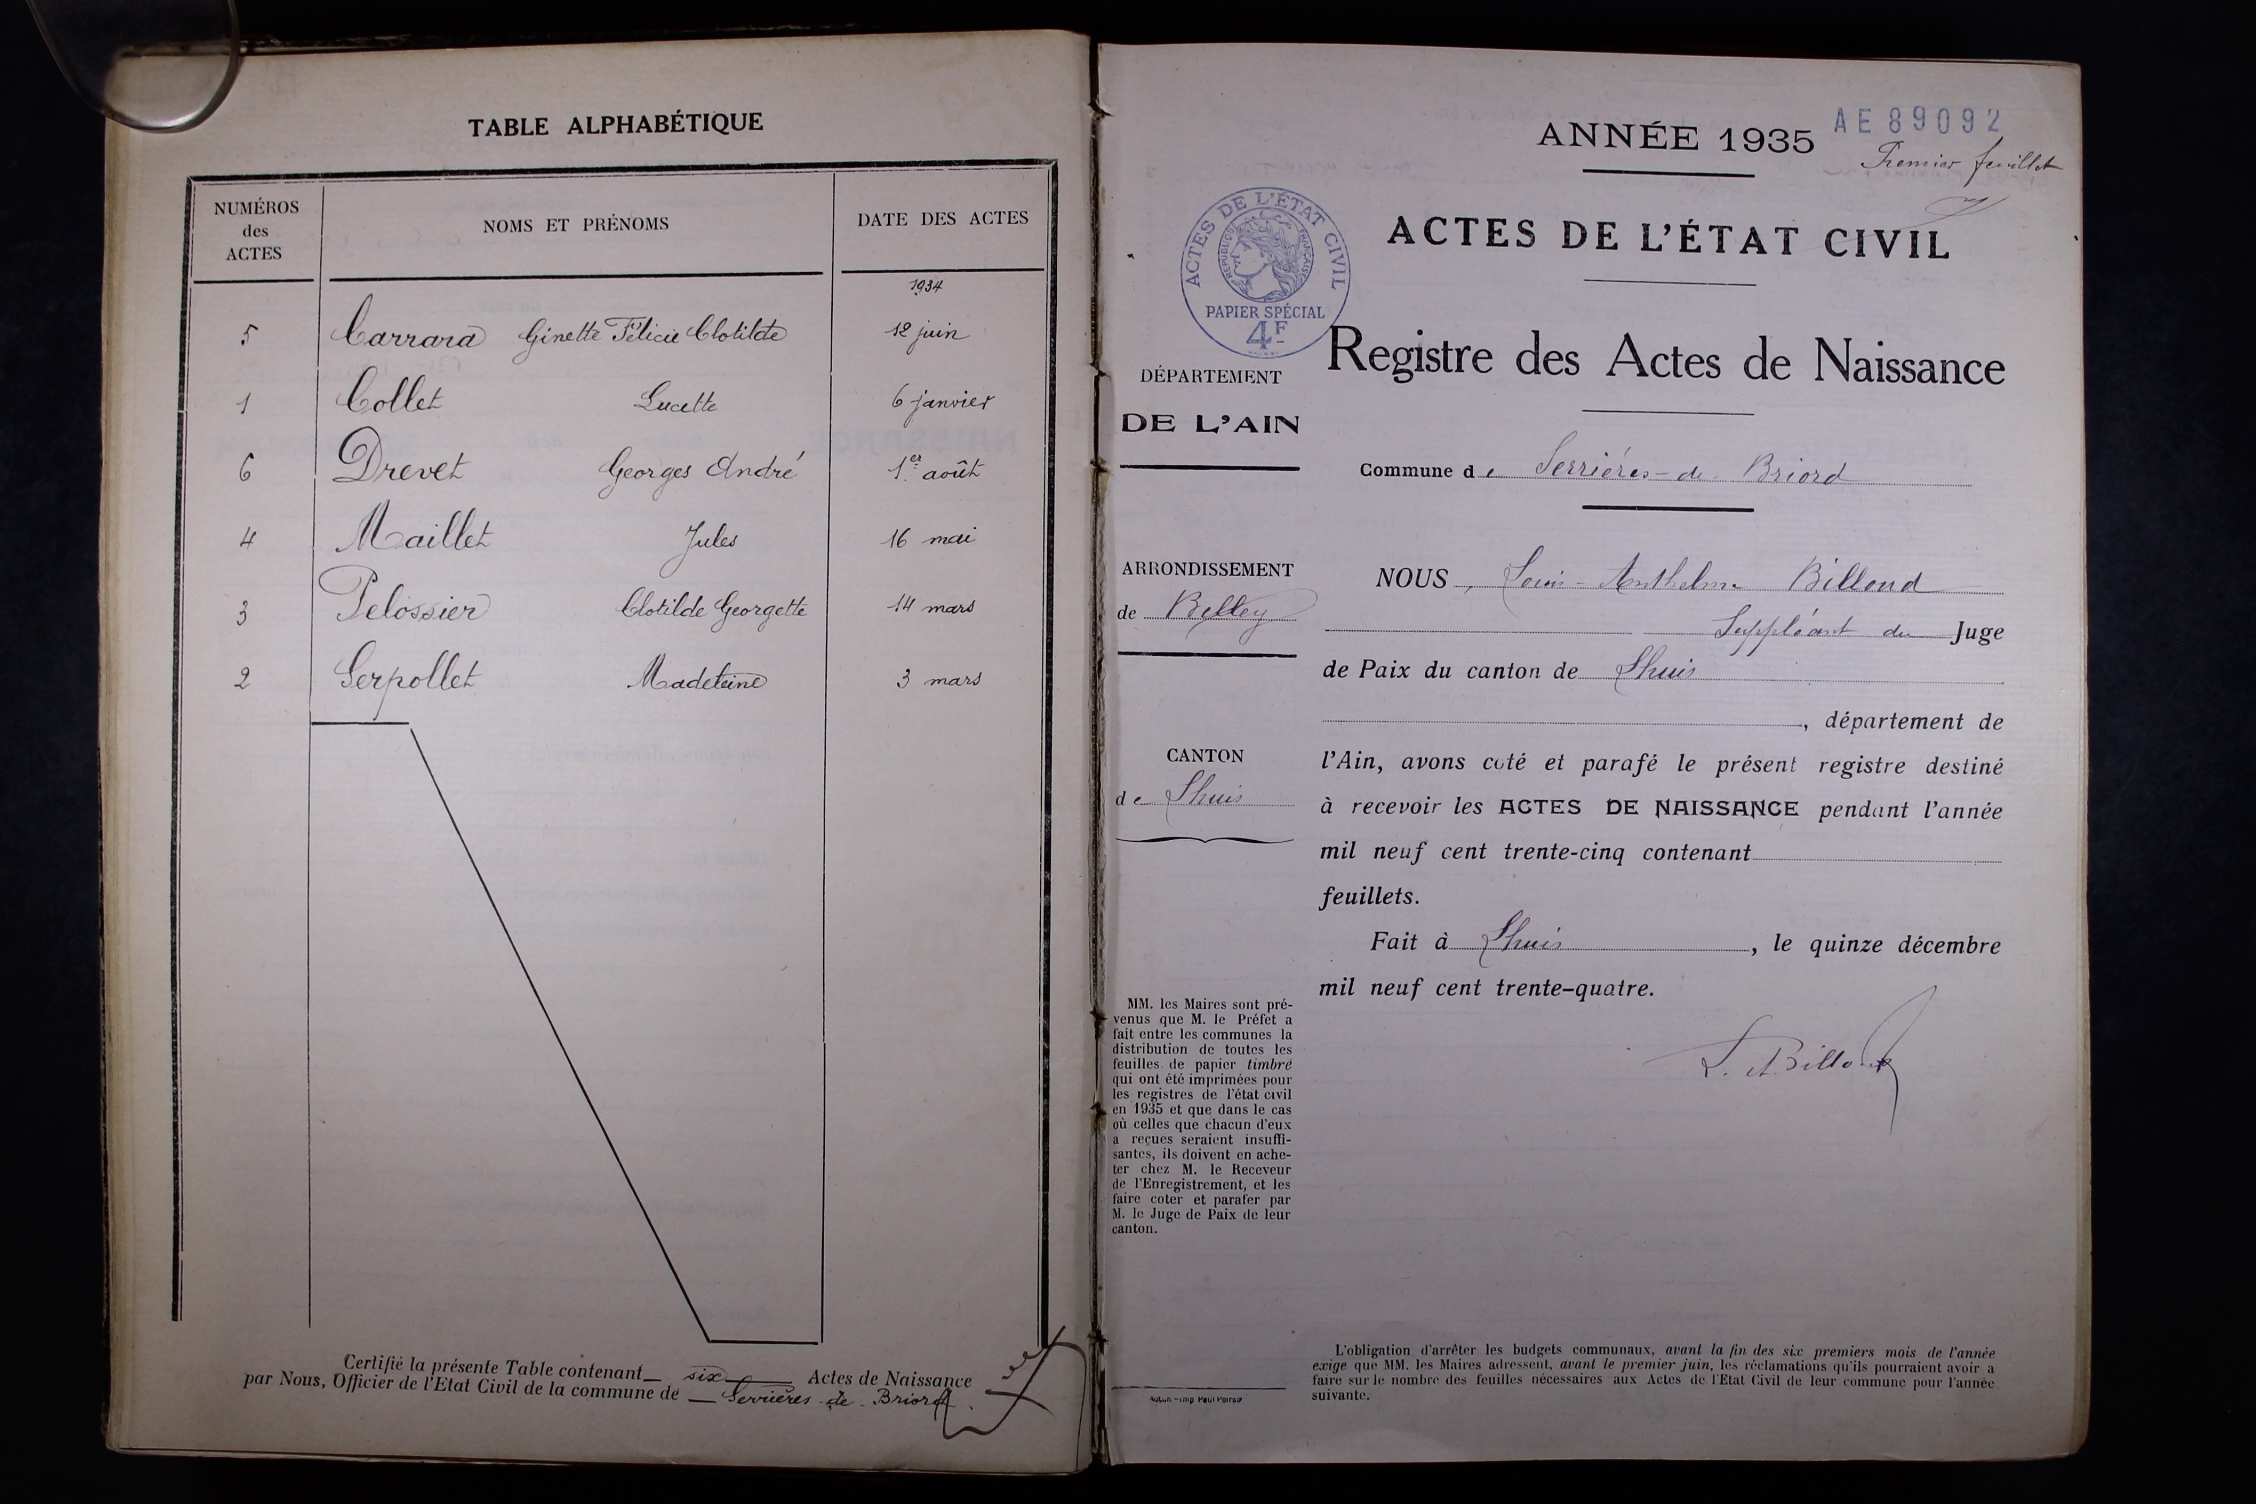 TABLE ALPHABÉTIQUE
NUMÉROS
des
ACTES
NOMS ET PRÉNOMS
DATE DES ACTES
1934
5 Carrara Ginette Félicie Clotilde 12 juin
1 Collet Lucette 6 janvier
6 Drevet Georges André 1er août
4 Maillet Jules 16 mai
3 Pelossier Clotilde Georgette 14 mars
2 Serpollet Madeleine 3 mars
Certifié la présente Table contenant six Actes de Naissance
par Nous, Officier de l'Etat Civil de la commune de Serrières-de-Briord
ANNÉE 1935
AE 89092
Premier feuillet
ACTES DE L'ÉTAT CIVIL
RÉPUBLIQUE FRANÇAISE
PAPIER SPÉCIAL
4F
ACTES DE L'ÉTAT CIVIL
Registre des Actes de Naissance
DÉPARTEMENT
DE L'AIN
Commune de Serrières-de-Briord
ARRONDISSEMENT
de Belley
CANTON
de Lhuis
NOUS, Louis-Anthelme Billoud
Suppléant du Juge
de Paix du canton de Lhuis
, département de
l'Ain, avons coté et parafé le présent registre destiné
à recevoir les ACTES DE NAISSANCE pendant l'année
mil neuf cent trente-cinq contenant
feuillets.
Fait à Lhuis, le quinze décembre
mil neuf cent trente-quatre.
L. A. Billoud
MM. les Maires sont pré-
venus que M. le Préfet a
fait entre les communes la
distribution de toutes les
feuilles de papier timbré
qui ont été imprimées pour
les registres de l'état civil
en 1935 et que dans le cas
où celles que chacun d'eux
a reçues seraient insuffi-
santes, ils doivent en ache-
ter chez M. le Receveur
de l'Enregistrement, et les
faire coter et parafer par
M. le Juge de Paix de leur
canton.
L'obligation d'arrêter les budgets communaux, avant la fin des six premiers mois de l'année
exige que MM. les Maires adressent, avant le premier juin, les réclamations qu'ils pourraient avoir a
faire sur le nombre des feuilles nécessaires aux Actes de l'Etat Civil de leur commune pour l'année
suivante.